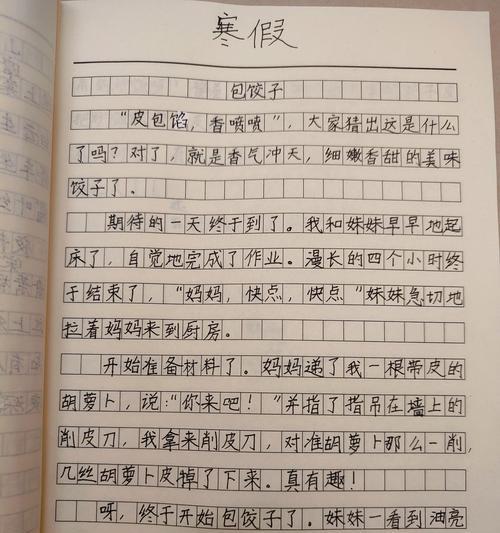 寒假
包饺子
“皮包馅,香喷喷”,大家猜出这是什么
了吗?对了,就是香气冲天,细嫩香甜的美味
饺子了。
期待的一天终于到了。我和妹妹早早地起
床了,自觉地完成了作业。漫长的四个小时终
于结束了,“妈妈,快点,快点”妹妹急切地
拉着妈妈来到厨房。
开始准备材料了。妈妈递了我一根带皮的
胡萝卜,说:“你来吧!”并指了指吊在墙上的
削皮刀,我拿来削皮刀,对准胡萝卜那么一削,
几丝胡萝卜皮掉了下来。真有趣!
呀,终于开始包饺子了。妹妹一看到油亮